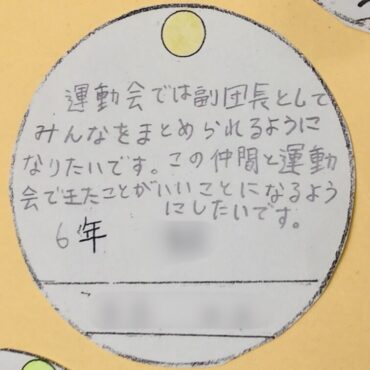 運動会では副団長として
みんなをまとめられるように
なりたいです。この仲間と運動
会で生たことがいいことになるよう
にしたいです。
6年